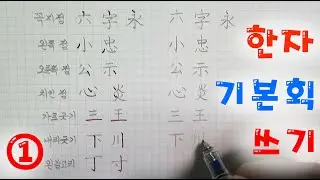 꼭지점 六 字 永 六 字 永
왼쪽점 小 忠 小 忠
오른쪽점 公 示 公 示
치킨점 心 炎 心 炎
가로긋기 三 王 三 王
내리긋기 下 川 下 川
왼갈고리 丁 寸
한자
기본획
쓰기
①